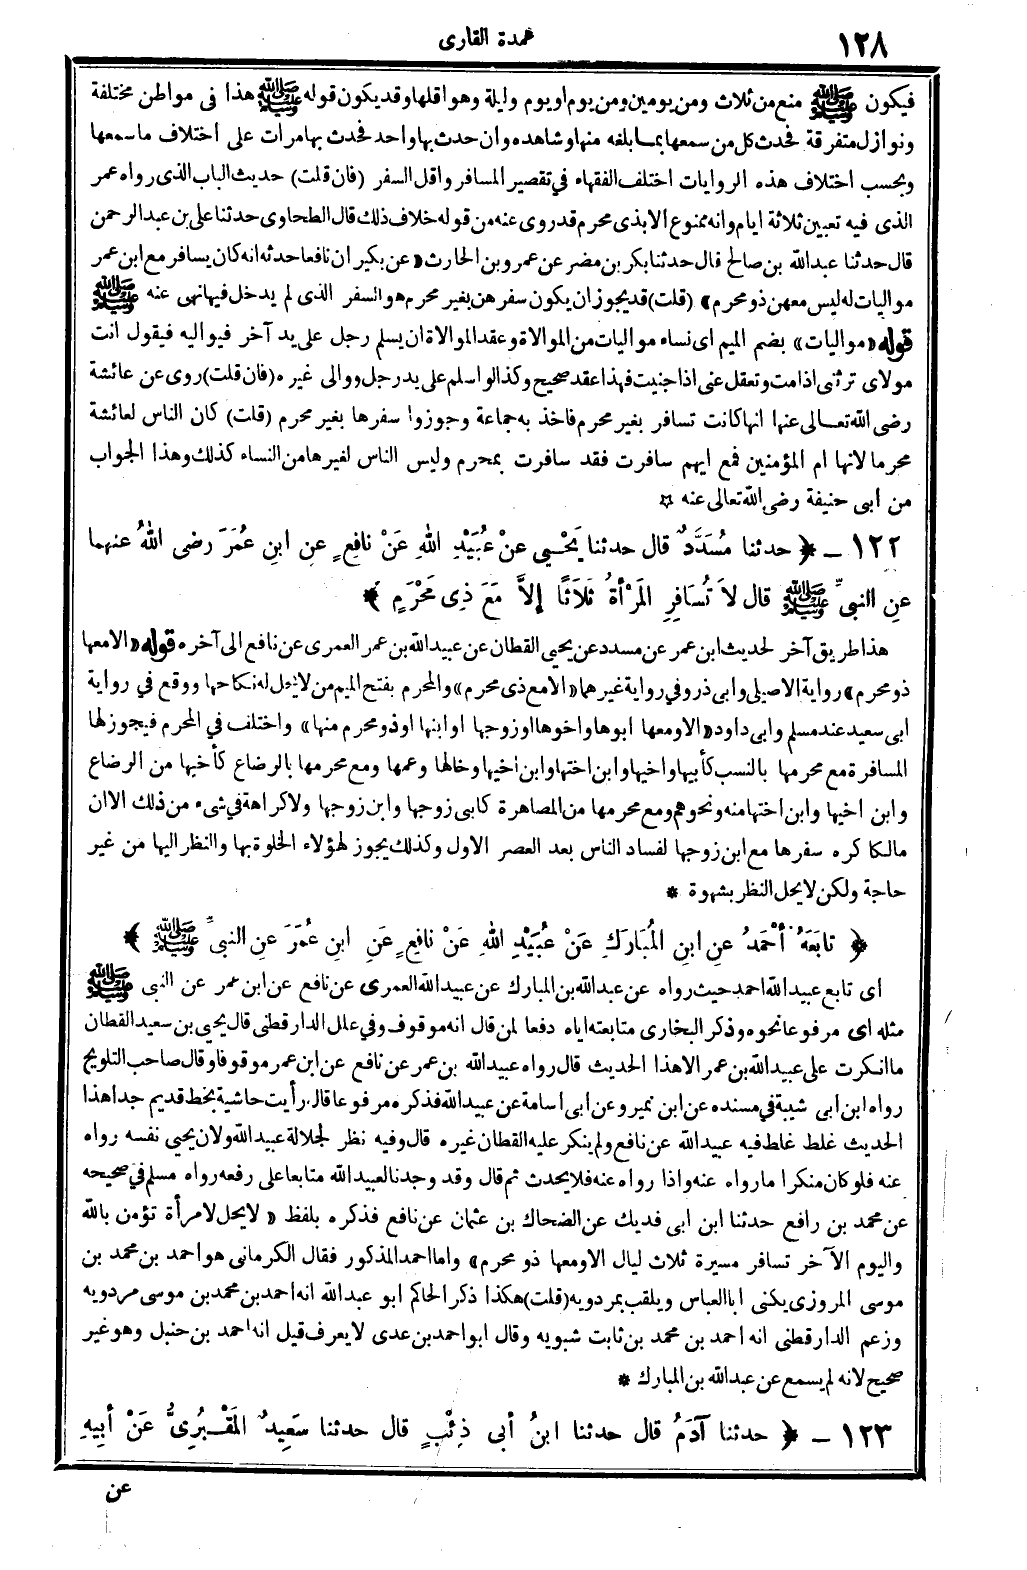 ١٢٨
عمدة القارى
فيكون ﷺ منع من ثلاث ومن يومين ومن يوم او يوم وليلة وهو اقلها وقد يكون قوله ﷺ هذا فى مواطن مختلفة
ونوازل متفرقة فحدث كل من سمعها بما بلغه منها وشاهده وان حدث بها واحد فحدث بها مرات على اختلاف ما سمعها
وبحسب اختلاف هذه الروايات اختلف الفقهاء في تقصير المسافر واقل السفر (فان قلت) حديث الباب الذى رواه عمر
الذى فيه تعيين ثلاثة ايام وانه ممنوع الا بذى محرم قد روى عنه من قوله خلاف ذلك قال الطحاوى حدثنا على بن عبد الرحمن
قال حدثنا عبد الله بن صالح قال حدثنا بكر بن مضر عن عمرو بن الحارث «عن بكير ان نافعا حدثه انه كان يسافر مع ابن عمر
مواليات له ليس معهن ذو محرم» (قلت) قد يجوز ان يكون سفرهن بغير محرم هو السفر الذى لم يدخل فيما نهى عنه ﷺ
قوله «مواليات» بضم الميم اى نساء مواليات من الموالاة وعقد الموالاة ان يسلم رجل على يد آخر فيواليه فيقول انت
مولاى ترثنى اذا مت وتعقل عنى اذا جنيت فهذا عقد صحيح وكذا لو اسلم على يد رجل ووالى غيره (فان قلت) روى عن عائشة
رضى الله تعالى عنها انها كانت تسافر بغير محرم فاخذ به جماعة وجوزوا سفرها بغير محرم (قلت) كان الناس لعائشة
محرما لانها ام المؤمنين فمع ايهم سافرت فقد سافرت بمحرم وليس الناس لغيرها من النساء كذلك وهذا الجواب
من أبى حنيفة رضى الله تعالى عنه ☆
١٢٢ – ﴿ حدثنا مُسَدَّدٌ قال حدثنا يَحْيى عنْ عُبَيْدِ اللهِ عَنْ نافِعٍ عنِ ابنِ عُمَرَ رضى اللهُ عنهما
عنِ النبىِّ ﷺ قال لاَ تُسَافِرِ المَرْأةُ ثَلاَثًا إلاَّ مَعَ ذِى مَحْرَمٍ ﴾
هذا طريق آخر لحديث ابن عمر عن مسدد عن يحيى القطان عن عبيد الله بن عمر العمرى عن نافع الى آخره قوله «الا معها
ذو محرم» رواية الاصيلى وابى ذر وفي رواية غيرهما «الا مع ذى محرم» والمحرم بفتح الميم من لا يحل له نكاحها ووقع في رواية
ابى سعيد عند مسلم وابى داود «الا ومعها ابوها واخوها او زوجها او ابنها او ذو محرم منها» واختلف في المحرم فيجوز لها
المسافرة مع محرمها بالنسب كأبيها واخيها وابن اختها وابن اخيها وخالها وعمها ومع محرمها بالرضاع كأخيها من الرضاع
وابن اخيها وابن اختها منه ونحوهم ومع محرمها من المصاهرة كابى زوجها وابن زوجها ولا كراهة في شىء من ذلك الا ان
مالكا كره سفرها مع ابن زوجها لفساد الناس بعد العصر الاول وكذلك يجوز لهؤلاء الخلوة بها والنظر اليها من غير
حاجة ولكن لا يحل النظر بشهوة *
﴿ تابَعَهُ أحْمَدُ عنِ ابنِ المُبَارَكِ عَنْ عُبَيْدِ اللهِ عَنْ نافِعٍ عَنِ ابنِ عُمَرَ عنِ النبىِّ ﷺ ﴾
اى تابع عبيد الله احمد حيث رواه عن عبد الله بن المبارك عن عبيد الله العمرى عن نافع عن ابن عمر عن النبى ﷺ
مثله اى مرفوعا نحوه وذكر البخارى متابعته اياه دفعا لمن قال انه موقوف وفي علل الدارقطنى قال يحيى بن سعيد القطان
ما انكرت على عبيد الله بن عمر الا هذا الحديث قال رواه عبيد الله بن عمر عن نافع عن ابن عمر موقوفا وقال صاحب التلويح
رواه ابن ابى شيبة في مسنده عن ابن نمير وعن ابى اسامة عن عبيد الله فذكره مرفوعا قال رأيت حاشية بخط قديم جدا هذا
الحديث غلط غلط فيه عبيد الله عن نافع ولم ينكر عليه القطان غيره قال وفيه نظر لجلالة عبيد الله ولان يحيى نفسه رواه
عنه فلو كان منكرا ما رواه عنه واذا رواه عنه فلا يحدث ثم قال وقد وجدنا لعبيد الله متابعا على رفعه رواه مسلم في صحيحه
عن محمد بن رافع حدثنا ابن ابى فديك عن الضحاك بن عثمان عن نافع فذكره بلفظ « لا يحل لامرأة تؤمن بالله
واليوم الآخر تسافر مسيرة ثلاث ليال الا ومعها ذو محرم» واما احمد المذكور فقال الكرمانى هو احمد بن محمد بن
موسى المروزى يكنى ابا العباس ويلقب بمردويه (قلت) هكذا ذكر الحاكم ابو عبد الله انه احمد بن محمد بن موسى مردويه
وزعم الدارقطنى انه احمد بن محمد بن ثابت شبويه وقال ابو احمد بن عدى لا يعرف قيل انه احمد بن حنبل وهو غير
صحيح لانه لم يسمع عن عبد الله بن المبارك *
١٢٣ – ﴿ حدثنا آدَمُ قال حدثنا ابنُ أبى ذِئْبٍ قال حدثنا سَعِيدٌ المَقْبُرِىُّ عَنْ أبِيهِ
عن